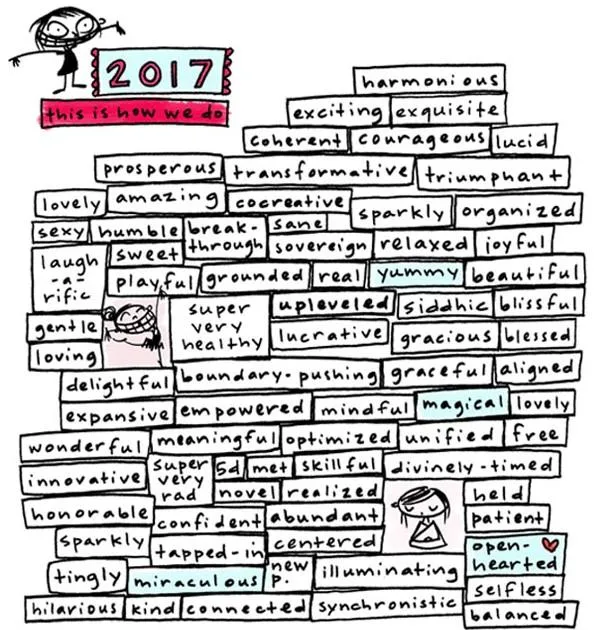 2017
this is how we do
harmonious
exciting exquisite
coherent courageous lucid
prosperous transformative triumphant
lovely amazing cocreative sparkly organized
sexy humble break-through sane sovereign relaxed joyful
laugh-a-rific sweet
playful grounded real yummy beautiful
super very healthy upleveled siddhic blissful
gentle lucrative gracious blessed
loving
delightful boundary-pushing graceful aligned
expansive empowered mindful magical lovely
wonderful meaningful optimized unified free
innovative super very rad 5d met skillful divinely-timed
novel realized held
honorable confident abundant patient
sparkly tapped-in centered open-hearted
tingly miraculous new p. illuminating selfless
hilarious kind connected synchronistic balanced